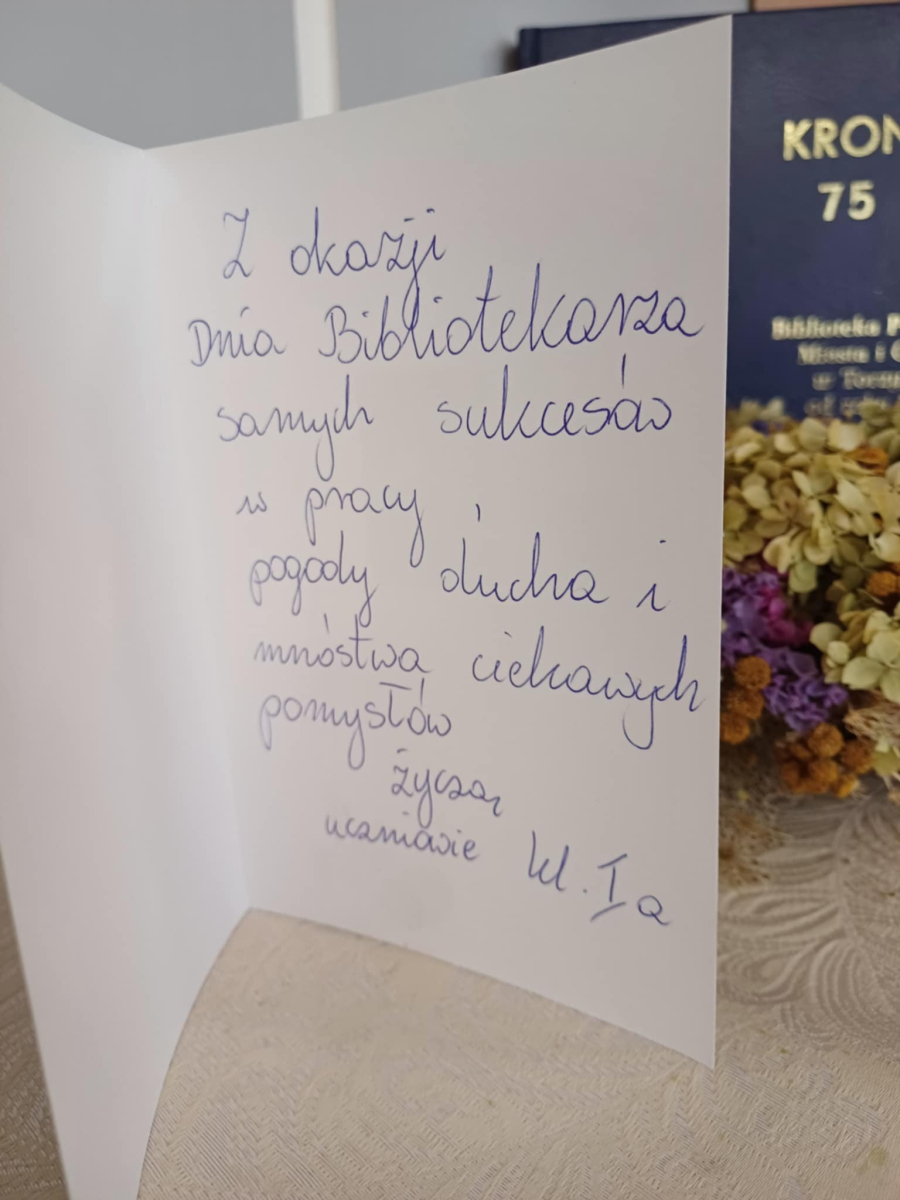 Z okazji
Dnia Bibliotekarza
samych sukcesów
w pracy,
pogody ducha i
mnóstwa ciekawych
pomysłów
życzą
uczniowie kl. I a
KRON
75
Biblioteka P
Miasta i G
w Torzy